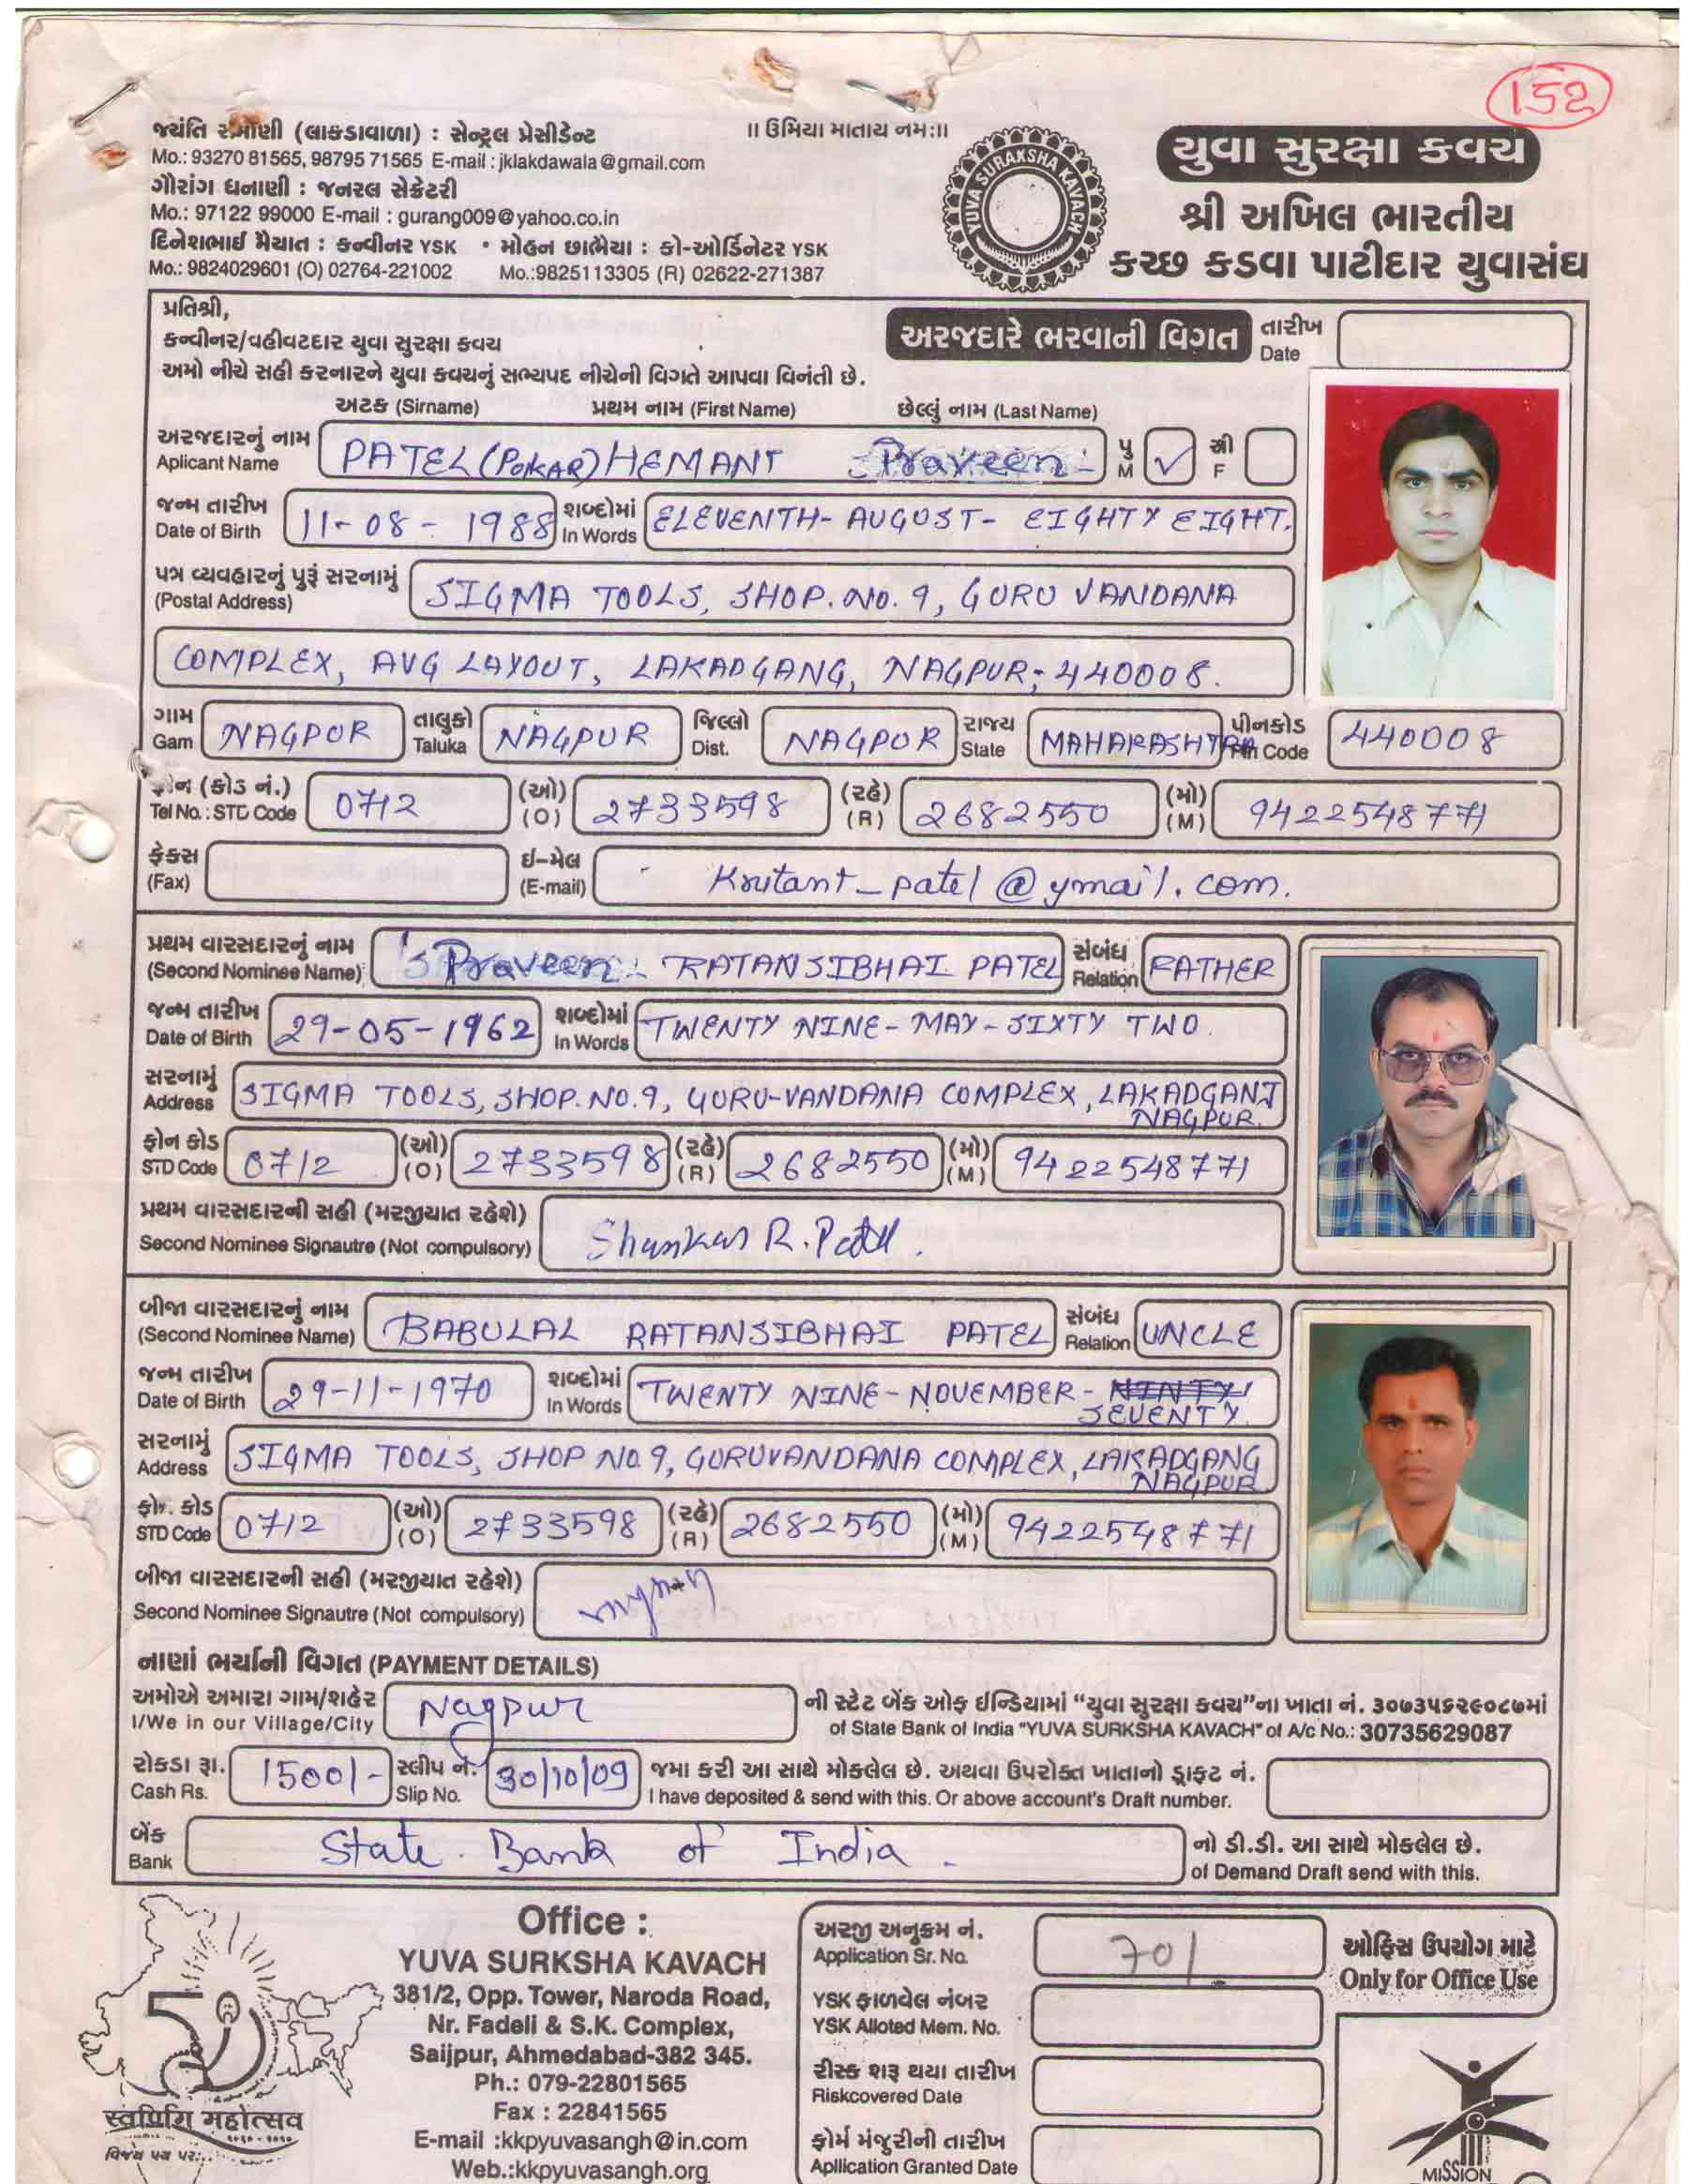 152
જયંતિ રમાણી (લાકડાવાળા) : સેન્ટ્રલ પ્રેસીડેન્ટ
Mo.: 93270 81565, 98795 71565 E-mail : jklakdawala@gmail.com
ગૌરાંગ ધનાણી : જનરલ સેક્રેટરી
Mo.: 97122 99000 E-mail : gurang009@yahoo.co.in
દિનેશભાઈ મૈયાત : કન્વીનર YSK • મોહન છાભૈયા : કો-ઓર્ડિનેટર YSK
Mo.: 9824029601 (O) 02764-221002 Mo.:9825113305 (R) 02622-271387
॥ ઉમિયા માતાય નમ:॥
YUVA SURAKSHA KAVACH
યુવા સુરક્ષા કવચ
શ્રી અખિલ ભારતીય
કચ્છ કડવા પાટીદાર યુવાસંઘ
પ્રતિશ્રી,
કન્વીનર/વહીવટદાર યુવા સુરક્ષા કવચ
અમો નીચે સહી કરનારને યુવા કવચનું સભ્યપદ નીચેની વિગતે આપવા વિનંતી છે.
અરજદારે ભરવાની વિગત
તારીખ
Date
અટક (Sirname) પ્રથમ નામ (First Name) છેલ્લું નામ (Last Name)
અરજદારનું નામ
Aplicant Name PATEL (POKAR) HEMANT Praveen પુ M ✓ સ્ત્રી F
જન્મ તારીખ
Date of Birth 11-08-1988 શબ્દોમાં In Words ELEVENTH- AUGUST- EIGHTY EIGHT.
પત્ર વ્યવહારનું પુરૂં સરનામું
(Postal Address) SIGMA TOOLS, SHOP.NO. 9, GURU VANDANA
COMPLEX, AVG LAYOUT, LAKADGANG, NAGPUR; 440008.
ગામ Gam NAGPUR તાલુકો Taluka NAGPUR જિલ્લો Dist. NAGPUR રાજ્ય State MAHARASHTRA પીનકોડ Pin Code 440008
ફોન (કોડ નં.)
Tel No.: STD Code 0712 (ઓ) (O) 2733598 (રહે) (R) 2682550 (મો) (M) 9422548771
ફેકસ
(Fax) ઈ-મેલ (E-mail) Krutant_patel@ymail.com.
પ્રથમ વારસદારનું નામ
(Second Nominee Name) Praveen RATANSIBHAI PATEL સંબંધ Relation FATHER
જન્મ તારીખ
Date of Birth 29-05-1962 શબ્દોમાં In Words TWENTY NINE- MAY- SIXTY TWO.
સરનામું
Address SIGMA TOOLS, SHOP.NO.9, GURU-VANDANA COMPLEX, LAKADGANJ
NAGPUR.
ફોન કોડ
STD Code 0712 (ઓ) (O) 2733598 (રહે) (R) 2682550 (મો) (M) 9422548771
પ્રથમ વારસદારની સહી (મરજીયાત રહેશે)
Second Nominee Signautre (Not compulsory) Shankar R. Patel.
બીજા વારસદારનું નામ
(Second Nominee Name) BABULAL RATANSIBHAI PATEL સંબંધ Relation UNCLE
જન્મ તારીખ
Date of Birth 29-11-1970 શબ્દોમાં In Words TWENTY NINE- NOVEMBER- NINTY
SEVENTY.
સરનામું
Address SIGMA TOOLS, SHOP NO.9, GURUVANDANA COMPLEX, LAKADGANG
NAGPUR
ફોન કોડ
STD Code 0712 (ઓ) (O) 2733598 (રહે) (R) 2682550 (મો) (M) 9422548771
બીજા વારસદારની સહી (મરજીયાત રહેશે)
Second Nominee Signautre (Not compulsory)
નાણાં ભર્યાની વિગત (PAYMENT DETAILS)
અમોએ અમારા ગામ/શહેર Nagpur ની સ્ટેટ બેંક ઓફ ઈન્ડિયામાં “યુવા સુરક્ષા કવચ”ના ખાતા નં. ૩૦૭૩૫૬૨૯૦૮૭માં
I/We in our Village/City of State Bank of India "YUVA SURKSHA KAVACH" of A/c No.: 30735629087
રોકડા રૂા. 1500/- સ્લીપ નં. 30/10/09 જમા કરી આ સાથે મોકલેલ છે. અથવા ઉપરોક્ત ખાતાનો ડ્રાફટ નં.
Cash Rs. Slip No. I have deposited & send with this. Or above account's Draft number.
બેંક State Bank of India નો ડી.ડી. આ સાથે મોકલેલ છે.
Bank of Demand Draft send with this.
Office :
YUVA SURKSHA KAVACH
381/2, Opp. Tower, Naroda Road,
Nr. Fadeli & S.K. Complex,
Saijpur, Ahmedabad-382 345.
Ph.: 079-22801565
Fax : 22841565
E-mail :kkpyuvasangh@in.com
Web.:kkpyuvasangh.org
50
મહોત્સવ
૨૦૧૦ - ૨૦૧૦
વિજય પથ પર...
અરજી અનુક્રમ નં.
Application Sr. No. 701
YSK ફાળવેલ નંબર
YSK Alloted Mem. No.
રીસ્ક શરૂ થયા તારીખ
Riskcovered Date
ફોર્મ મંજુરીની તારીખ
Apllication Granted Date
ઓફિસ ઉપયોગ માટે
Only for Office Use
MISSION